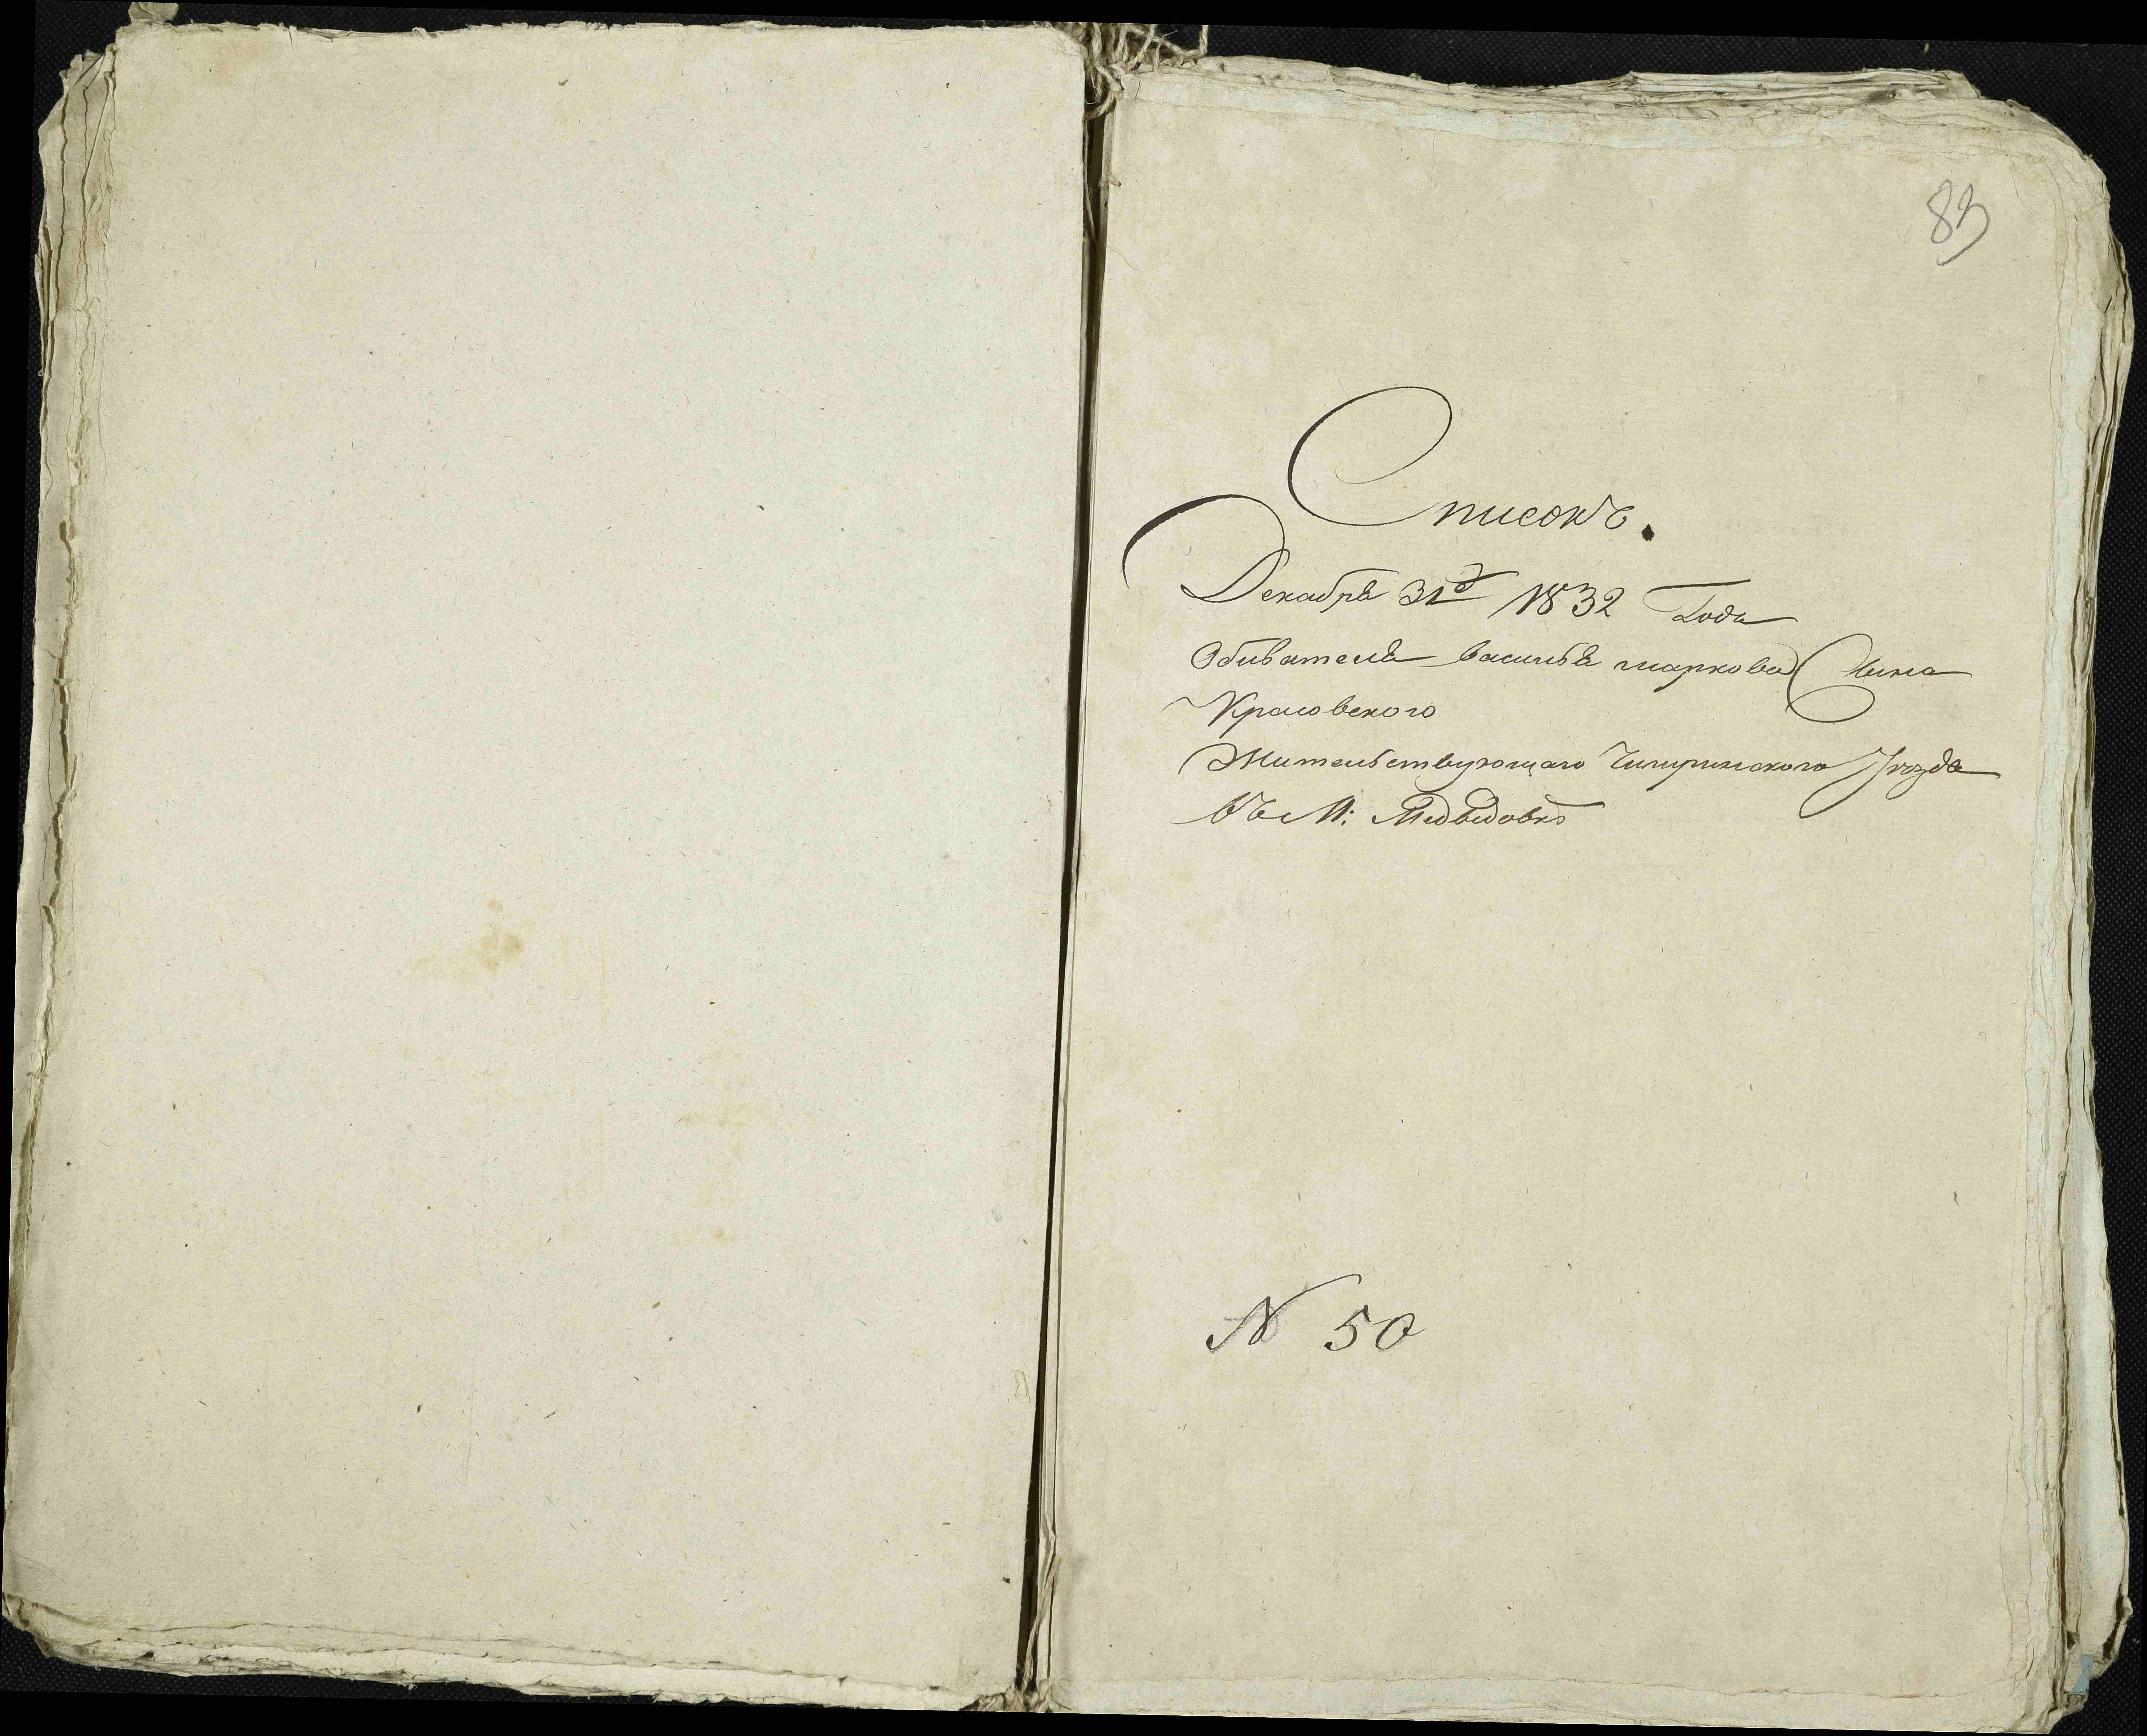 83
Списокъ.
Декабря 31д 1832 Года
Обивателя василья маркова Сина
Красовского
Жительствующаго Чигиринского Уезда
въ М: Медведовкѣ
N 50